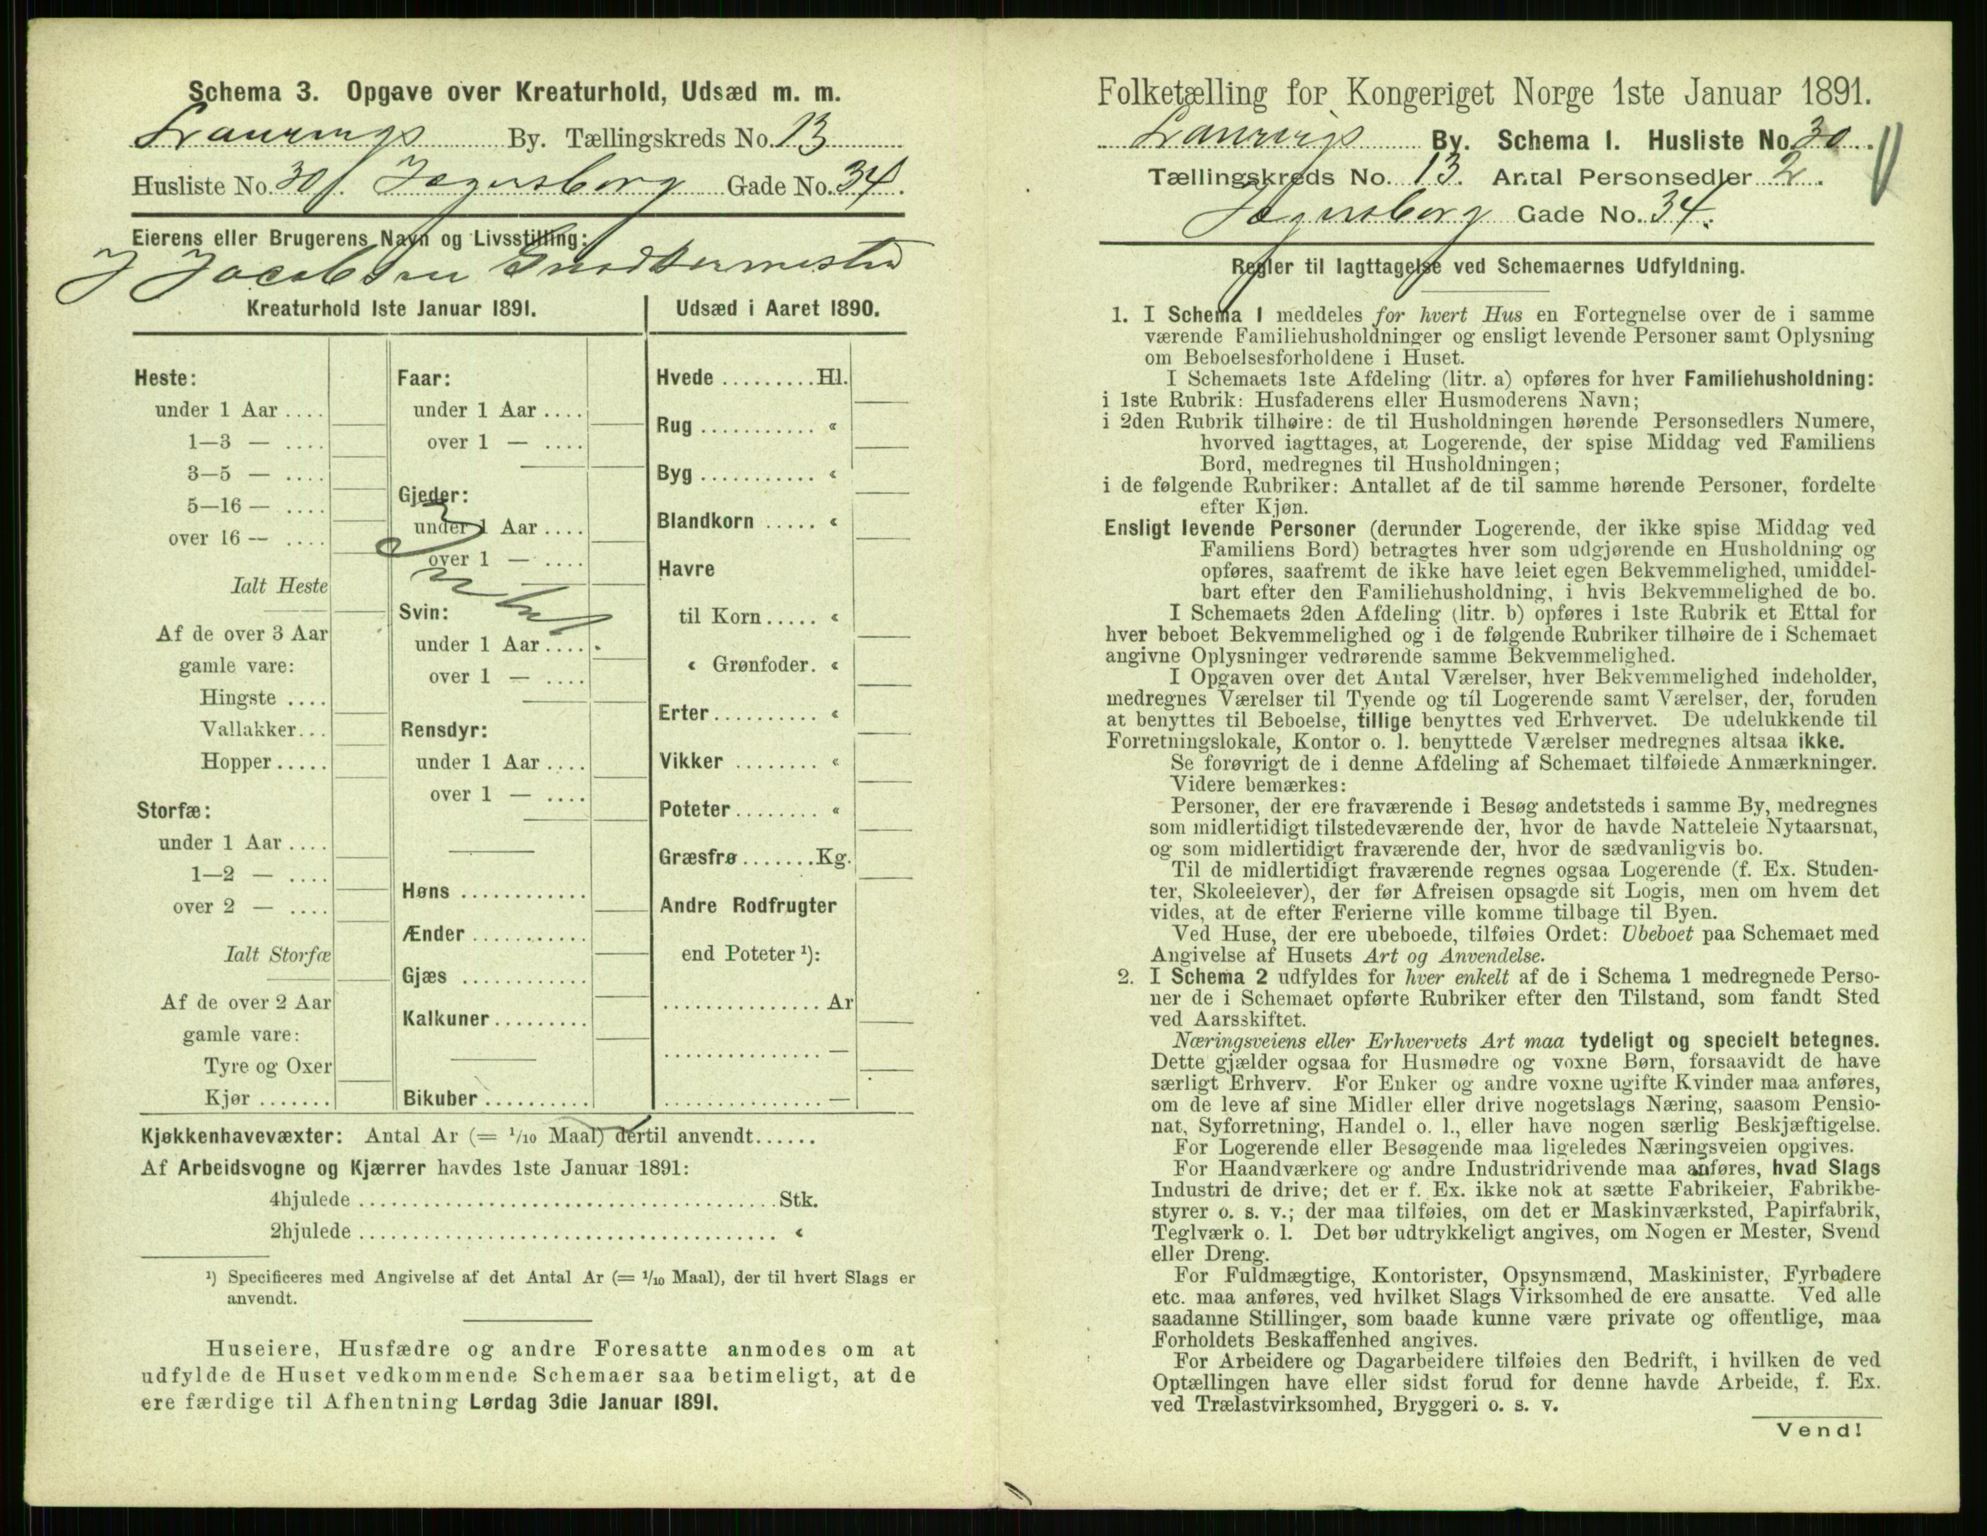 Schema 3. Opgave over Kreaturhold, Udsæd m. m.
Laurvigs By. Tællingskreds No. 13
Husliste No. 30 Jegersborg Gade No. 34.
Eierens eller Brugerens Navn og Livsstilling:
J Jacobsen Snedkermester
Kreaturhold 1ste Januar 1891.
Heste:
under 1 Aar ....
1—3 — ....
3—5 — ....
5—16 — ....
over 16 — ....
Ialt Heste
Af de over 3 Aar
gamle vare:
Hingste ....
Vallakker...
Hopper.....
Storfæ:
under 1 Aar ....
1—2 — ....
over 2 — ....
Ialt Storfæ
Af de over 2 Aar
gamle vare:
Tyre og Oxer
Kjør .......
Faar:
under 1 Aar ....
over 1 — ....
Gjeder:
under 1 Aar ....
over 1 — ....
Svin:
under 1 Aar ....
over 1 — ....
Rensdyr:
under 1 Aar ....
over 1 — ....
Høns ............
Ænder ...........
Gjæs ............
Kalkuner.........
Bikuber ..........
Udsæd i Aaret 1890.
Hvede .........Hl.
Rug ........... «
Byg ........... «
Blandkorn ..... «
Havre
til Korn..... «
« Grønfoder. «
Erter.......... «
Vikker ........ «
Poteter........ «
Græsfrø.......Kg.
Andre Rodfrugter
end Poteter ¹):
................ Ar
................ —
................ —
Kjøkkenhavevæxter: Antal Ar (= 1/10 Maal) dertil anvendt......
Af Arbeidsvogne og Kjærrer havdes 1ste Januar 1891:
4hjulede ......................................Stk.
2hjulede ...................................... «
¹) Specificeres med Angivelse af det Antal Ar (= 1/10 Maal), der til hvert Slags er
anvendt.
Huseiere, Husfædre og andre Foresatte anmodes om at
udfylde de Huset vedkommende Schemaer saa betimeligt, at de
ere færdige til Afhentning Lørdag 3die Januar 1891.
Folketælling for Kongeriget Norge 1ste Januar 1891.
Laurvigs By. Schema 1. Husliste No. 30
Tællingskreds No. 13. Antal Personsedler 2.
Jegersborg Gade No. 34.
Regler til Iagttagelse ved Schemaernes Udfyldning.
1. I Schema 1 meddeles for hvert Hus en Fortegnelse over de i samme
værende Familiehusholdninger og ensligt levende Personer samt Oplysning
om Beboelsesforholdene i Huset.
I Schemaets 1ste Afdeling (litr. a) opføres for hver Familiehusholdning:
i 1ste Rubrik: Husfaderens eller Husmoderens Navn;
i 2den Rubrik tilhøire: de til Husholdningen hørende Personsedlers Numere,
hvorved iagttages, at Logerende, der spise Middag ved Familiens
Bord, medregnes til Husholdningen;
i de følgende Rubriker: Antallet af de til samme hørende Personer, fordelte
efter Kjøn.
Ensligt levende Personer (derunder Logerende, der ikke spise Middag ved
Familiens Bord) betragtes hver som udgjørende en Husholdning og
opføres, saafremt de ikke have leiet egen Bekvemmelighed, umiddel-
bart efter den Familiehusholdning, i hvis Bekvemmelighed de bo.
I Schemaets 2den Afdeling (litr. b) opføres i 1ste Rubrik et Ettal for
hver beboet Bekvemmelighed og i de følgende Rubriker tilhøire de i Schemaet
angivne Oplysninger vedrørende samme Bekvemmelighed.
I Opgaven over det Antal Værelser, hver Bekvemmelighed indeholder,
medregnes Værelser til Tyende og til Logerende samt Værelser, der, foruden
at benyttes til Beboelse, tillige benyttes ved Erhvervet. De udelukkende til
Forretningslokale, Kontor o. l. benyttede Værelser medregnes altsaa ikke.
Se forøvrigt de i denne Afdeling af Schemaet tilføiede Anmærkninger.
Videre bemærkes:
Personer, der ere fraværende i Besøg andetsteds i samme By, medregnes
som midlertidigt tilstedeværende der, hvor de havde Natteleie Nytaarsnat,
og som midlertidigt fraværende der, hvor de sædvanligvis bo.
Til de midlertidigt fraværende regnes ogsaa Logerende (f. Ex. Studen-
ter, Skoleelever), der før Afreisen opsagde sit Logis, men om hvem det
vides, at de efter Ferierne ville komme tilbage til Byen.
Ved Huse, der ere ubeboede, tilføies Ordet: Ubeboet paa Schemaet med
Angivelse af Husets Art og Anvendelse.
2. I Schema 2 udfyldes for hver enkelt af de i Schema 1 medregnede Perso-
ner de i Schemaet opførte Rubriker efter den Tilstand, som fandt Sted
ved Aarsskiftet.
Næringsveiens eller Erhvervets Art maa tydeligt og specielt betegnes.
Dette gjælder ogsaa for Husmødre og voxne Børn, forsaavidt de have
særligt Erhverv. For Enker og andre voxne ugifte Kvinder maa anføres,
om de leve af sine Midler eller drive nogetslags Næring, saasom Pensio-
nat, Syforretning, Handel o. l., eller have nogen særlig Beskjæftigelse.
For Logerende eller Besøgende maa ligeledes Næringsveien opgives.
For Haandværkere og andre Industridrivende maa anføres, hvad Slags
Industri de drive; det er f. Ex. ikke nok at sætte Fabrikeier, Fabrikbe-
styrer o. s. v.; der maa tilføies, om det er Maskinværksted, Papirfabrik,
Teglværk o. l. Det bør udtrykkeligt angives, om Nogen er Mester, Svend
eller Dreng.
For Fuldmægtige, Kontorister, Opsynsmænd, Maskinister, Fyrbødere
etc. maa anføres, ved hvilket Slags Virksomhed de ere ansatte. Ved alle
saadanne Stillinger, som baade kunne være private og offentlige, maa
Forholdets Beskaffenhed angives.
For Arbeidere og Dagarbeidere tilføies den Bedrift, i hvilken de ved
Optællingen have eller sidst forud for denne havde Arbeide, f. Ex.
ved Trælastvirksomhed, Bryggeri o. s. v.
Vend!